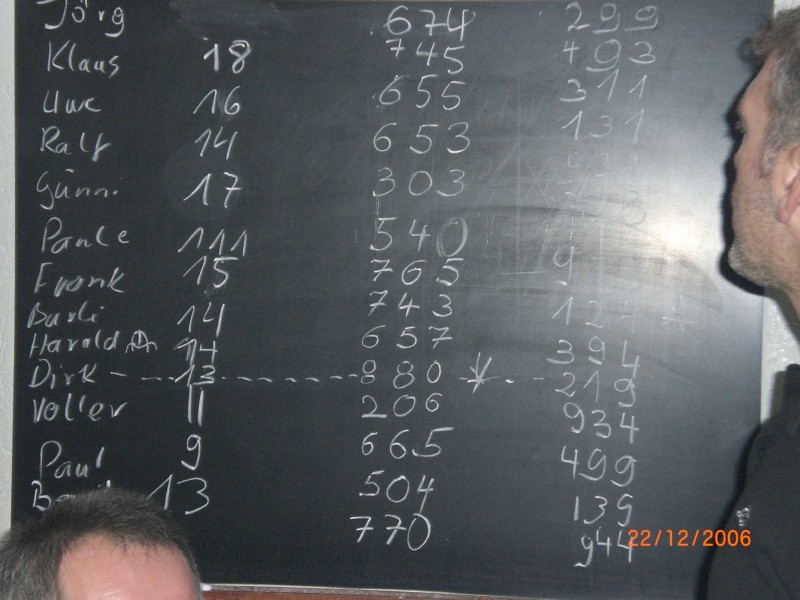 Jörg 674 299
Klaus 18 745 493
Uwe 16 655 311
Ralf 14 653 131
Günni 17 303
Paule 111 540
Frank 15 765 9
Burli 14 743 12
Harald 14 657 394
Dirk - 13 - - - - - - 880 - - - 219
Voller 11 206 934
Paul 9 665 499
13 504 139
770 944
22/12/2006